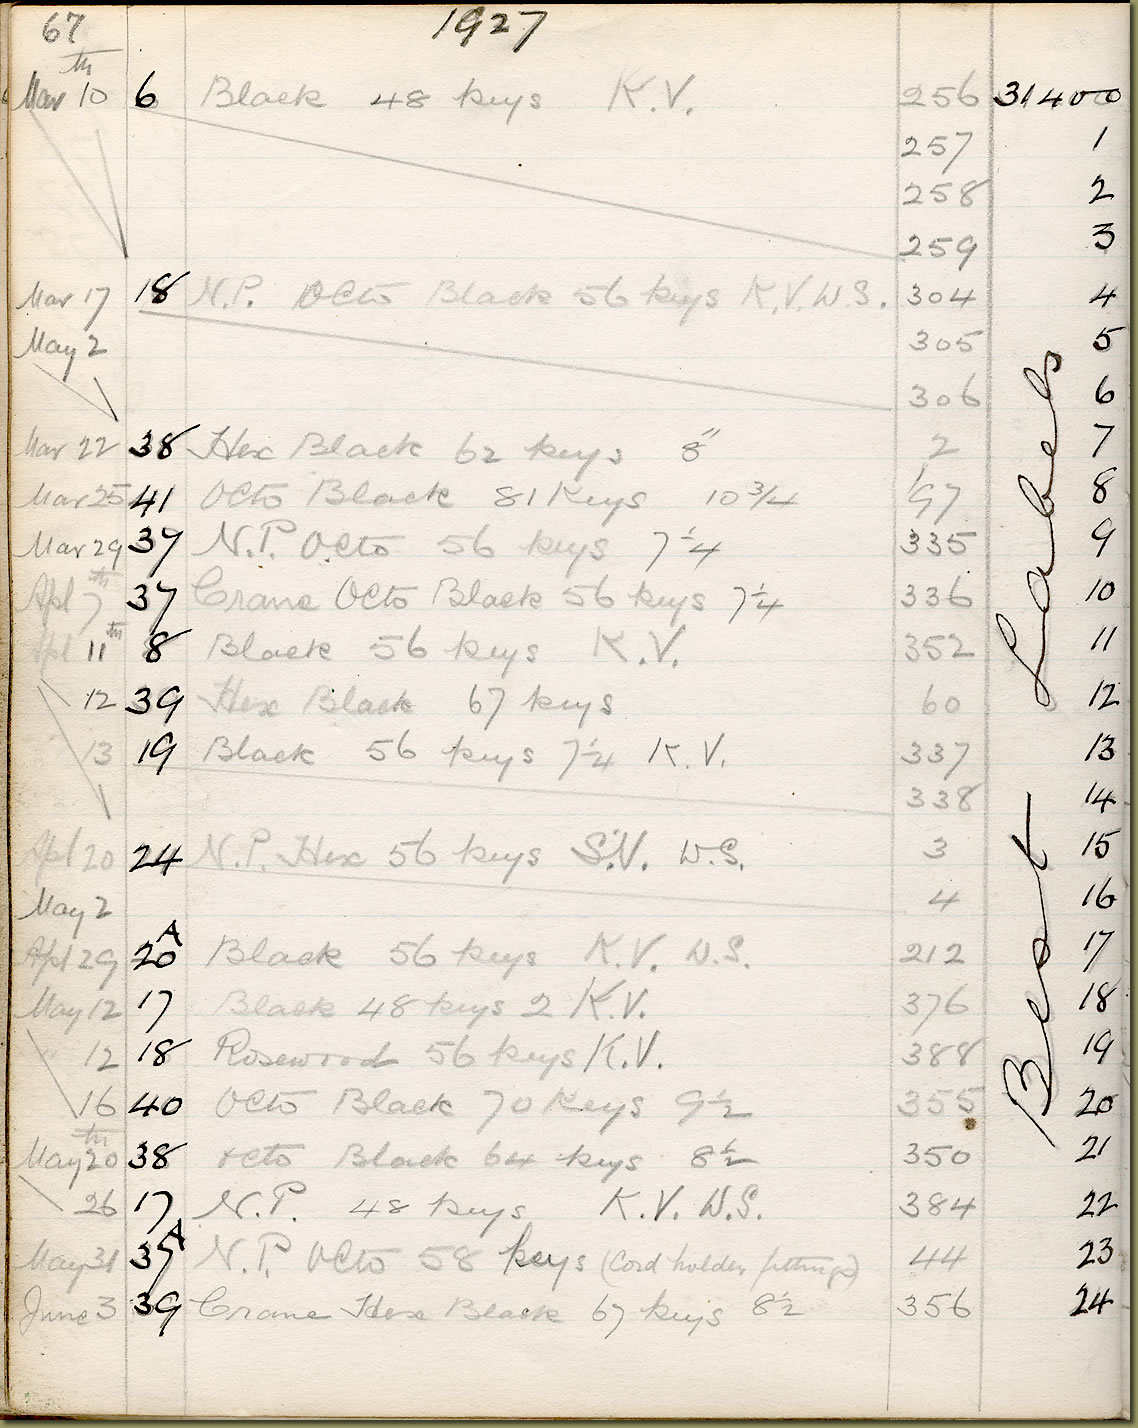 67 1927
th
Mar 10 6 Black 48 keys K.V. 256 31400
257 1
258 2
259 3
Mar 17 18 N.P. Octo Black 56 keys K.V. W.S. 304 4
May 2 305 5
306 6
Mar 22 38 Hex Black 62 keys 8" 2 7
Mar 25 41 Octo Black 81 Keys 10 3/4 197 8
Mar 29 37 N.P. Octo 56 keys 7 1/4 335 9
Apl 7th 37 Crane Octo Black 56 keys 7 1/4 336 10
Apl 11th 8 Black 56 keys K.V. 352 11
12 39 Hex Black 67 keys 60 12
13 19 Black 56 keys 7 1/4 K.V. 337 13
338 14
Apl 20 24 N.P. Hex 56 keys S.V. W.S. 3 15
May 2 4 16
Apl 29 20A Black 56 keys K.V. W.S. 212 17
May 12 17 Black 48 keys 2 K.V. 376 18
12 18 Rosewood 56 keys K.V. 388 19
16 40 Octo Black 70 Keys 9 1/2 355 20
May 20th 38 octo Black 64 keys 8 1/2 350 21
26 17 N.P. 48 keys K.V. W.S. 384 22
May 31 37A N.P. Octo 58 keys (Cord holder fittings) 44 23
June 3 39 Crane Hex Black 67 keys 8 1/2 356 24
Best Labels